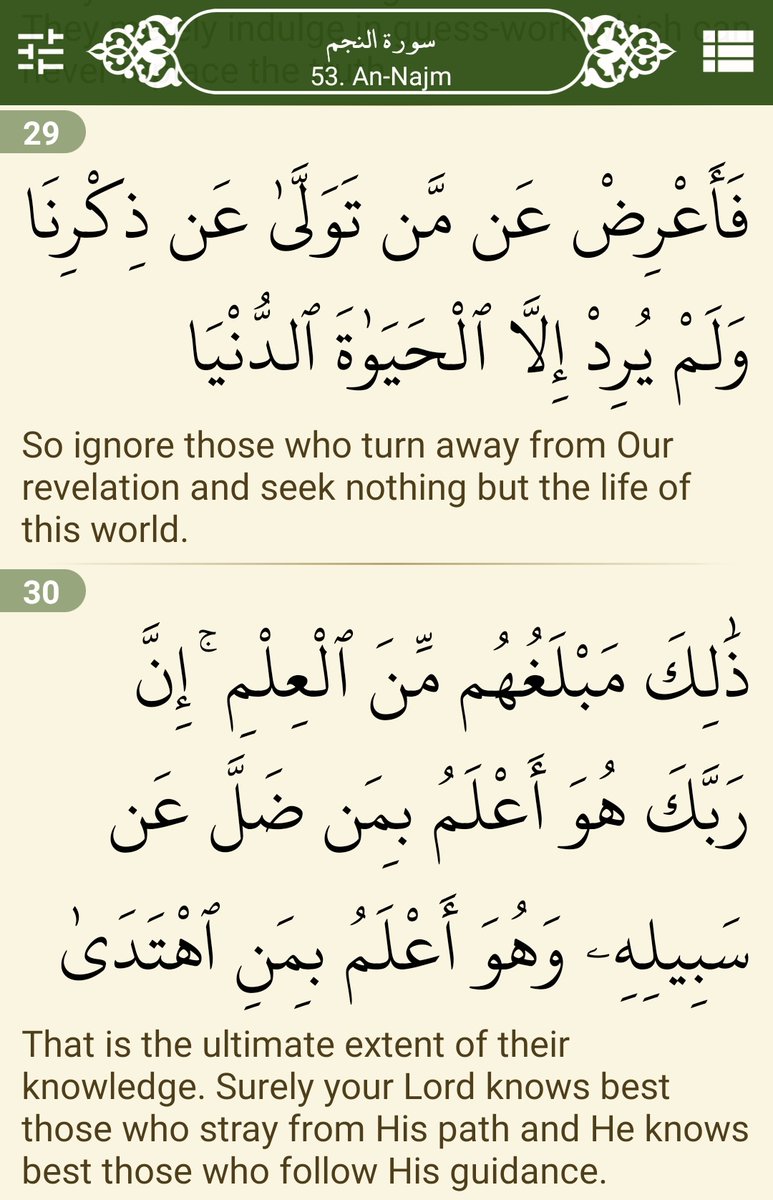 They merely indulge in guess-work which can
never replace the truth.
سورة النجم
53. An-Najm
29
فَأَعْرِضْ عَن مَّن تَوَلَّىٰ عَن ذِكْرِنَا
وَلَمْ يُرِدْ إِلَّا ٱلْحَيَوٰةَ ٱلدُّنْيَا
So ignore those who turn away from Our
revelation and seek nothing but the life of
this world.
30
ذَٰلِكَ مَبْلَغُهُم مِّنَ ٱلْعِلْمِ ۚ إِنَّ
رَبَّكَ هُوَ أَعْلَمُ بِمَن ضَلَّ عَن
سَبِيلِهِۦ وَهُوَ أَعْلَمُ بِمَنِ ٱهْتَدَىٰ
That is the ultimate extent of their
knowledge. Surely your Lord knows best
those who stray from His path and He knows
best those who follow His guidance.